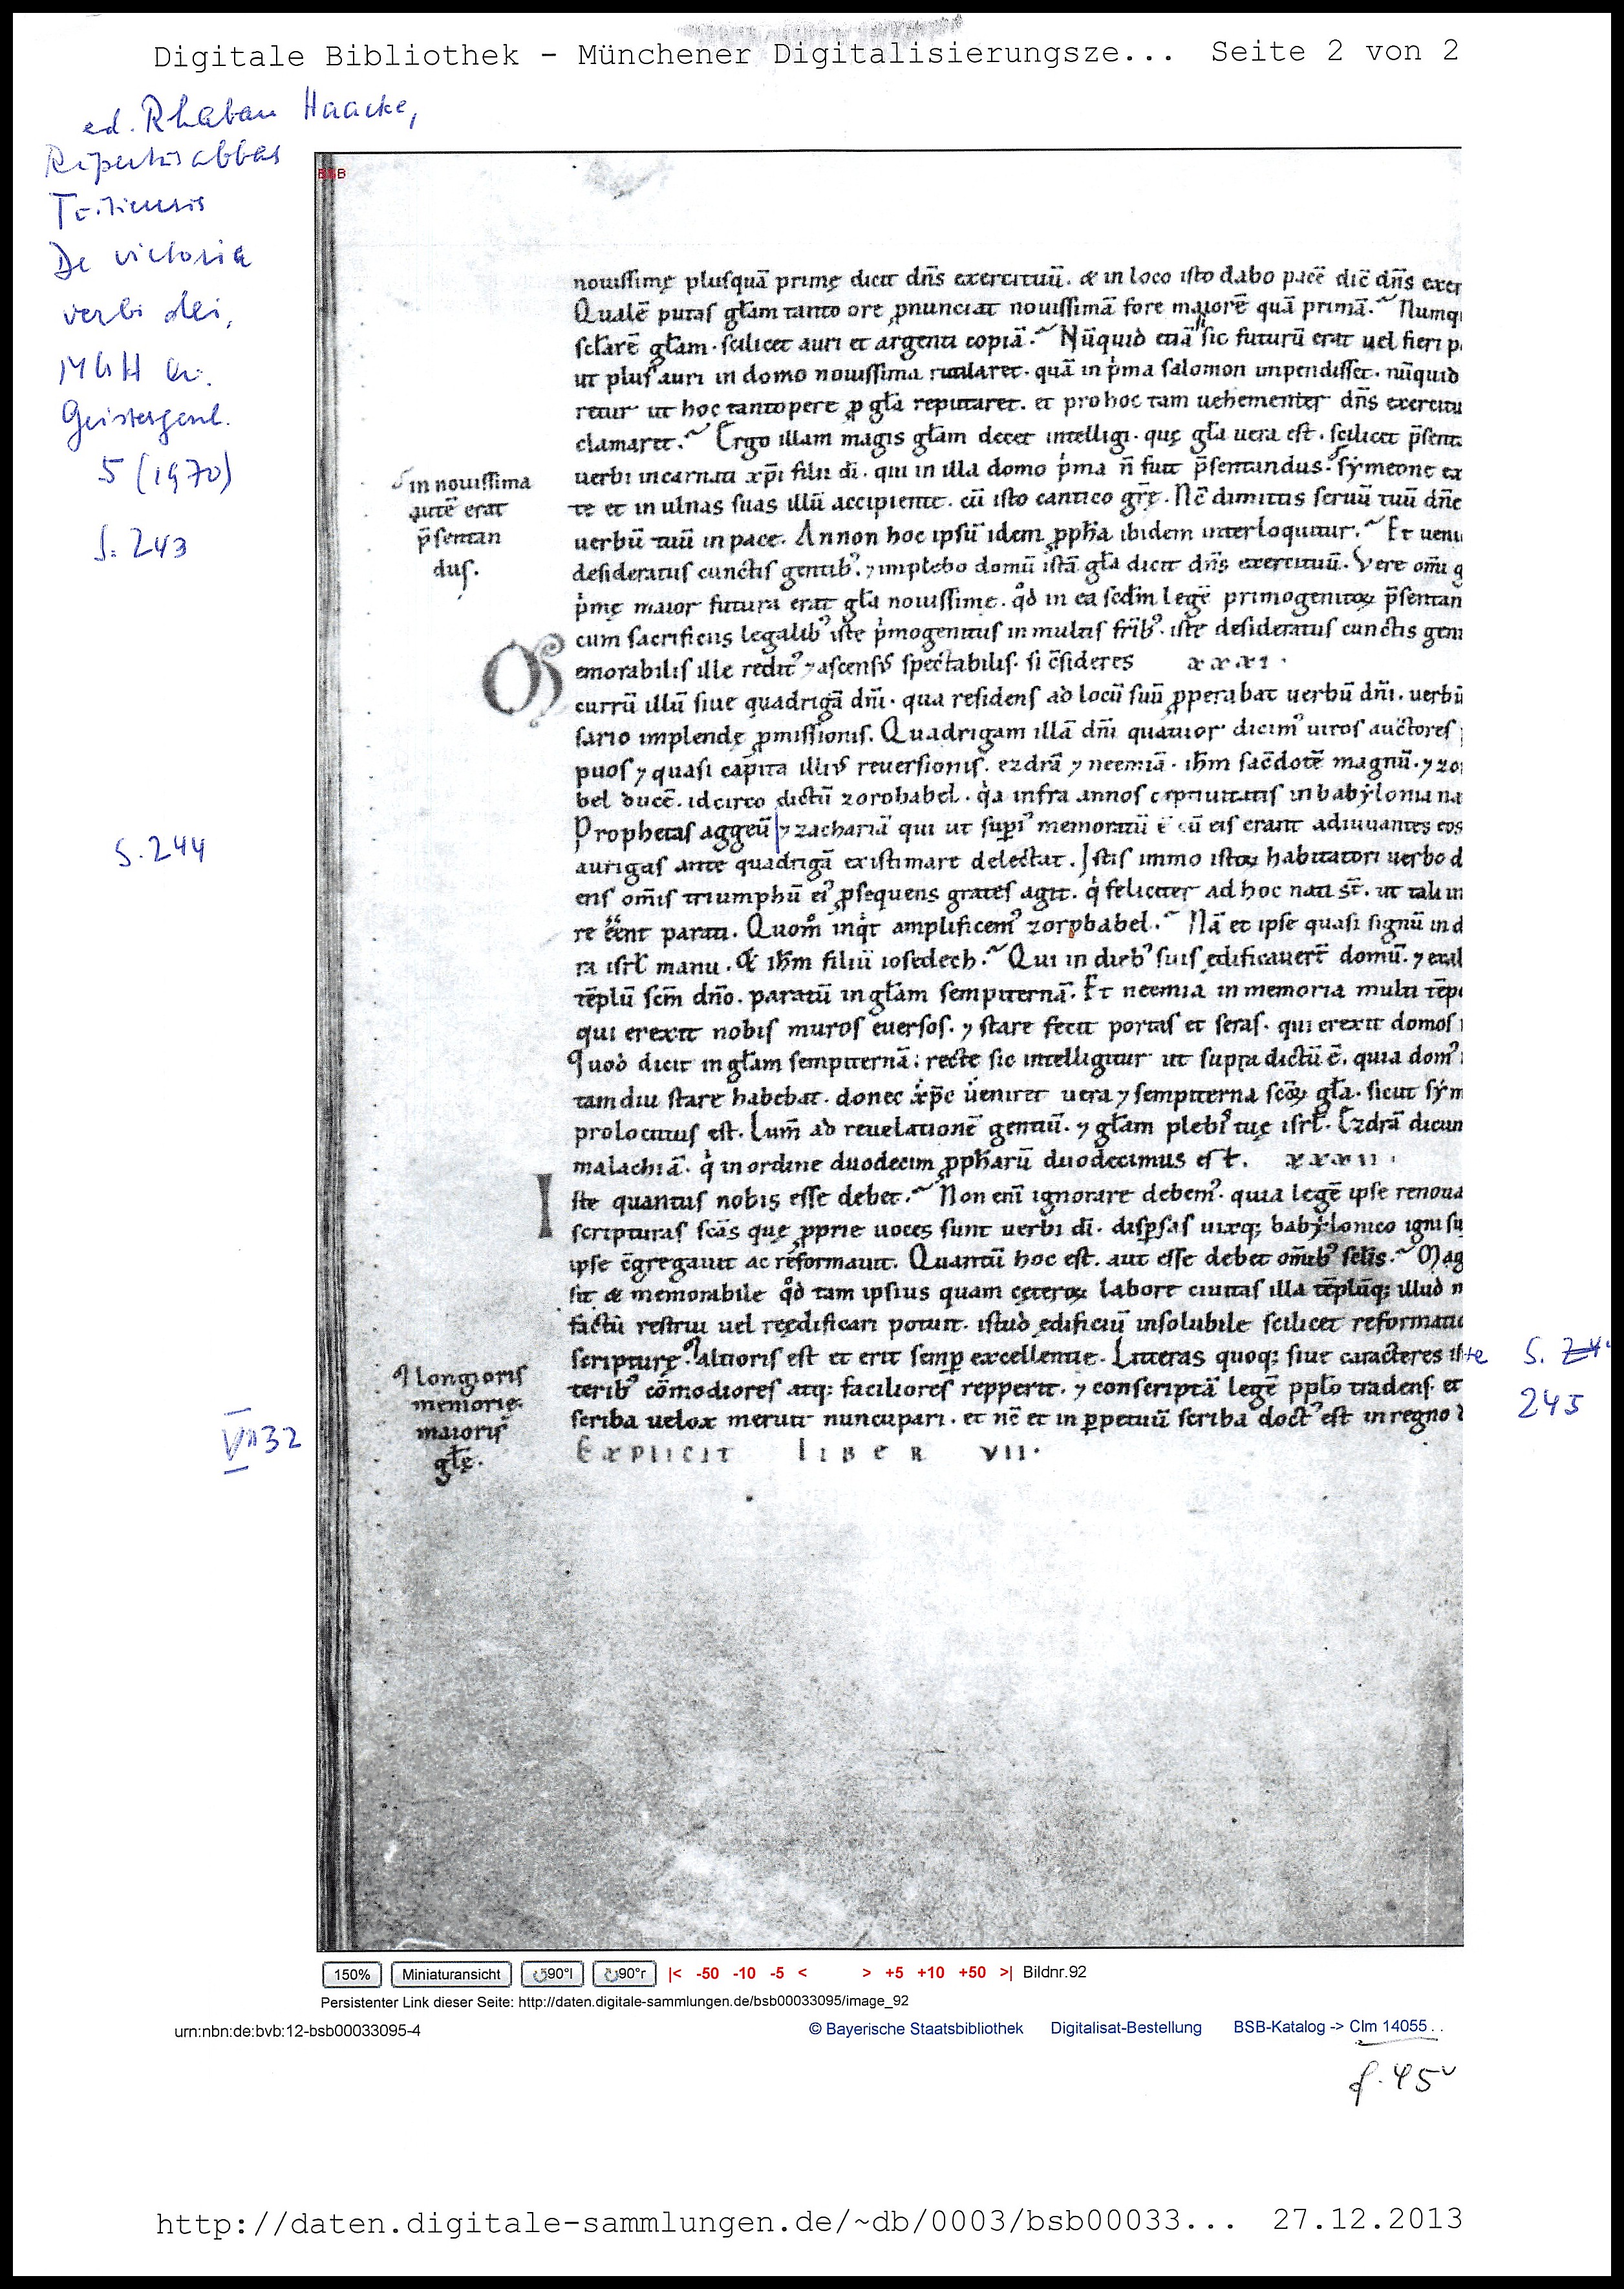 Digitale Bibliothek - Münchener Digitalisierungsze... Seite 2 von 2
ed. Rhaban Haacke,
Rupertus abbas
Tuitiensis
De victoria
verbi dei,
MGH Qu.
Geistesgesch.
5 (1970)
S. 243
BSB
nouissimę plusquā primę dicit dn̄s exercituū. & in loco isto dabo pacē dic̄ dn̄s exer
Qualē putas gl̄am tanto ore ꝓnunciat nouissimā fore maiorē quā primā. Numq
scl̄arē gl̄am. scilicet auri et argenti copiā. Nūquid etiā sic futurū erat uel fieri p
ut plus auri in domo nouissima rutilaret. quā in pͥma salomon impendisset. nūquid
retur ut hoc tantopere ꝓ gl̄a reputaret. et pro hoc tam uehementer dn̄s exercitu
clamaret. Ergo illam magis gl̄am decet intelligi. quę gl̄a uera est. scilicet p̄senta
uerbi incarnati xp̄i filii dī. qui in illa domo pͥma n̄ fuit p̄sentandus. sẏmeone ex
in nouissima
autē erat
p̄sentan
dus.
te et in ulnas suas illū accipiente. cū isto cantico gr̄ę. Nc̄ dimittis seruū tuū dn̄e
uerbū tuū in pace. Annon hoc ipsū idem ꝓpħa ibidem interloquitur. Et ueni
desideratus cunctis gentibꝰ. ⁊ implebo domū istā gl̄a dicit dn̄s exercituū. Vere om̄i g
pͥmę maior futura erat gl̄a nouissime. qd̊ in ea scd̄m legē primogenitoꝝ p̄sentan
cum sacrificiis legalibꝰ iste pͥmogenitus in multis fr̄ibꝰ. iste desideratus cunctis gen
M
emorabilis ille reditꝰ ⁊ ascensꝰ spectabilis. si c̄sideres xxxi.
currū illū siue quadrigā dn̄i. qua residens ad locū suū ꝓperabat uerbū dn̄i. uerbū
sario implendę ꝓmissionis. Quadrigam illā dn̄i quatuor dicimꝰ uiros auctores
puos ⁊ quasi capita illiꝰ reuersionis. ezdrā ⁊ neemiā. ih̄m sac̄dotē magnū. ⁊ zo
bel ducē. idcirco dictū zorobabel. qͥa infra annos captiuitatis in babẏlonia na
Prophetas aggeū ⁊ zachariā qui ut supͥ memoratū ē cū eis erant adiuuantes eos
S. 244
aurigas ante quadrigā existimare delectat. Istis immo istoꝝ habitatori uerbo d
ens om̄is triumphū eiꝰ ꝓsequens grates agit. qͥ feliciter ad hoc nati st̄. ut tali in
re eēnt parati. Quom̊ inqͥt amplificemꝰ zorobabel. Nā et ipse quasi signū in d
ra isrl̄ manu. & ih̄m filiū iosedech. Qui in diebꝰ suis ędificauert̄ domū. ⁊ exal
tēplū sc̄m dn̄o. paratū in gl̄am sempiternā. Et neemia in memoria multi tēpo
qui erexit nobis muros euersos. ⁊ stare fecit portas et seras. qui erexit domos
Quod dicit in gl̄am sempiternā: recte sic intelligitur ut supra dictū ē. quia domꝰ
tam diu stare habebat. donec xp̄c ueniret uera ⁊ sempiterna sc̄oꝝ gl̄a. sicut sẏm
prolocutus est. Lum̄ ad reuelationē gentiū. ⁊ gl̄am plebiꝰ tuę isrl̄. Ezdrā dicun
malachiā. qͥ in ordine duodecim ꝓpħarū duodecimus est. xxxii.
I
ste quantus nobis esse debet. Non enī ignorare debemꝰ. quia legē ipse renoua
scripturas sc̄as quę ꝓprie uoces sunt uerbi dī. dispersas uixq; babẏlonico igni su
ipse c̄gregauit ac reformauit. Quantū hoc est. aut esse debet om̄ibꝰ sc̄lis. Mag
sit & memorabile qd̊ tam ipsius quam cęteroꝝ labore ciuitas illa tēplūq; illud n
factū restrui uel reędificari potuit. istud ędificiū insolubile scilicet reformatio
scripturę. altioris est et erit semꝑ excellentie. Litteras quoq; siue caracteres iste
S. 244
245
longioris
memorie.
maioris
gl̄ę.
teribꝰ cōmodiores atq; faciliores repperit. ⁊ conscriptā legē ppl̄o tradens. et
scriba uelox meruit nuncupari. et nc̄ et in ꝑpetuū scriba doctꝰ est in regno d
VII 32
Explicit liber vii.
150% Miniaturansicht 90°l 90°r |< -50 -10 -5 < > +5 +10 +50 >| Bildnr.92
Persistenter Link dieser Seite: http://daten.digitale-sammlungen.de/bsb00033095/image_92
urn:nbn:de:bvb:12-bsb00033095-4 © Bayerische Staatsbibliothek Digitalisat-Bestellung BSB-Katalog -> Clm 14055 . .
f. 45v
http://daten.digitale-sammlungen.de/~db/0003/bsb00033... 27.12.2013